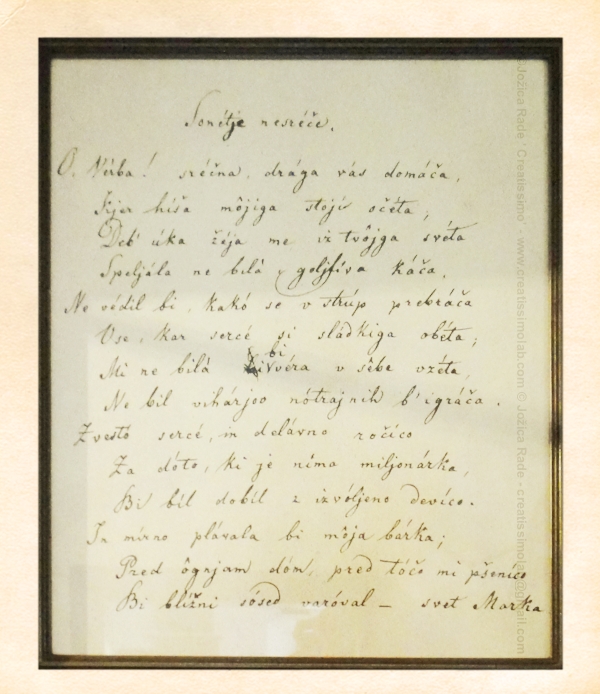 Sonétje nesréče.
O, Vérba! sréčna, drága vás domáča,
Kjer híša môjiga stojí očéta,
Deb' úka žéja me iz tvôjga svéta
Speljála ne bilá, goljfíva káča.
Ne védil bi, kakó se v strúp prebráča
Vse, kar sercé si sládkiga obéta;
Mi ne bilá bi véra v sébe vzéta,
Ne bil vihárjov nótrajnih b' igráča.
Zvestó sercé, in delávno ročíco
Za dóto, ki je níma miljonárka,
Bi bil dobíl z izvóljeno devíco.
In mírno plávala bi môja bárka;
Pred ôgnjam dóm, pred tóčo mi pšeníco
Bi blížni sósed varóval – svet Marka
Jožica Rade ' Creatissimo ' - www.creatissimolab.com © Jožica Rade - creatissimolab@gmail.com